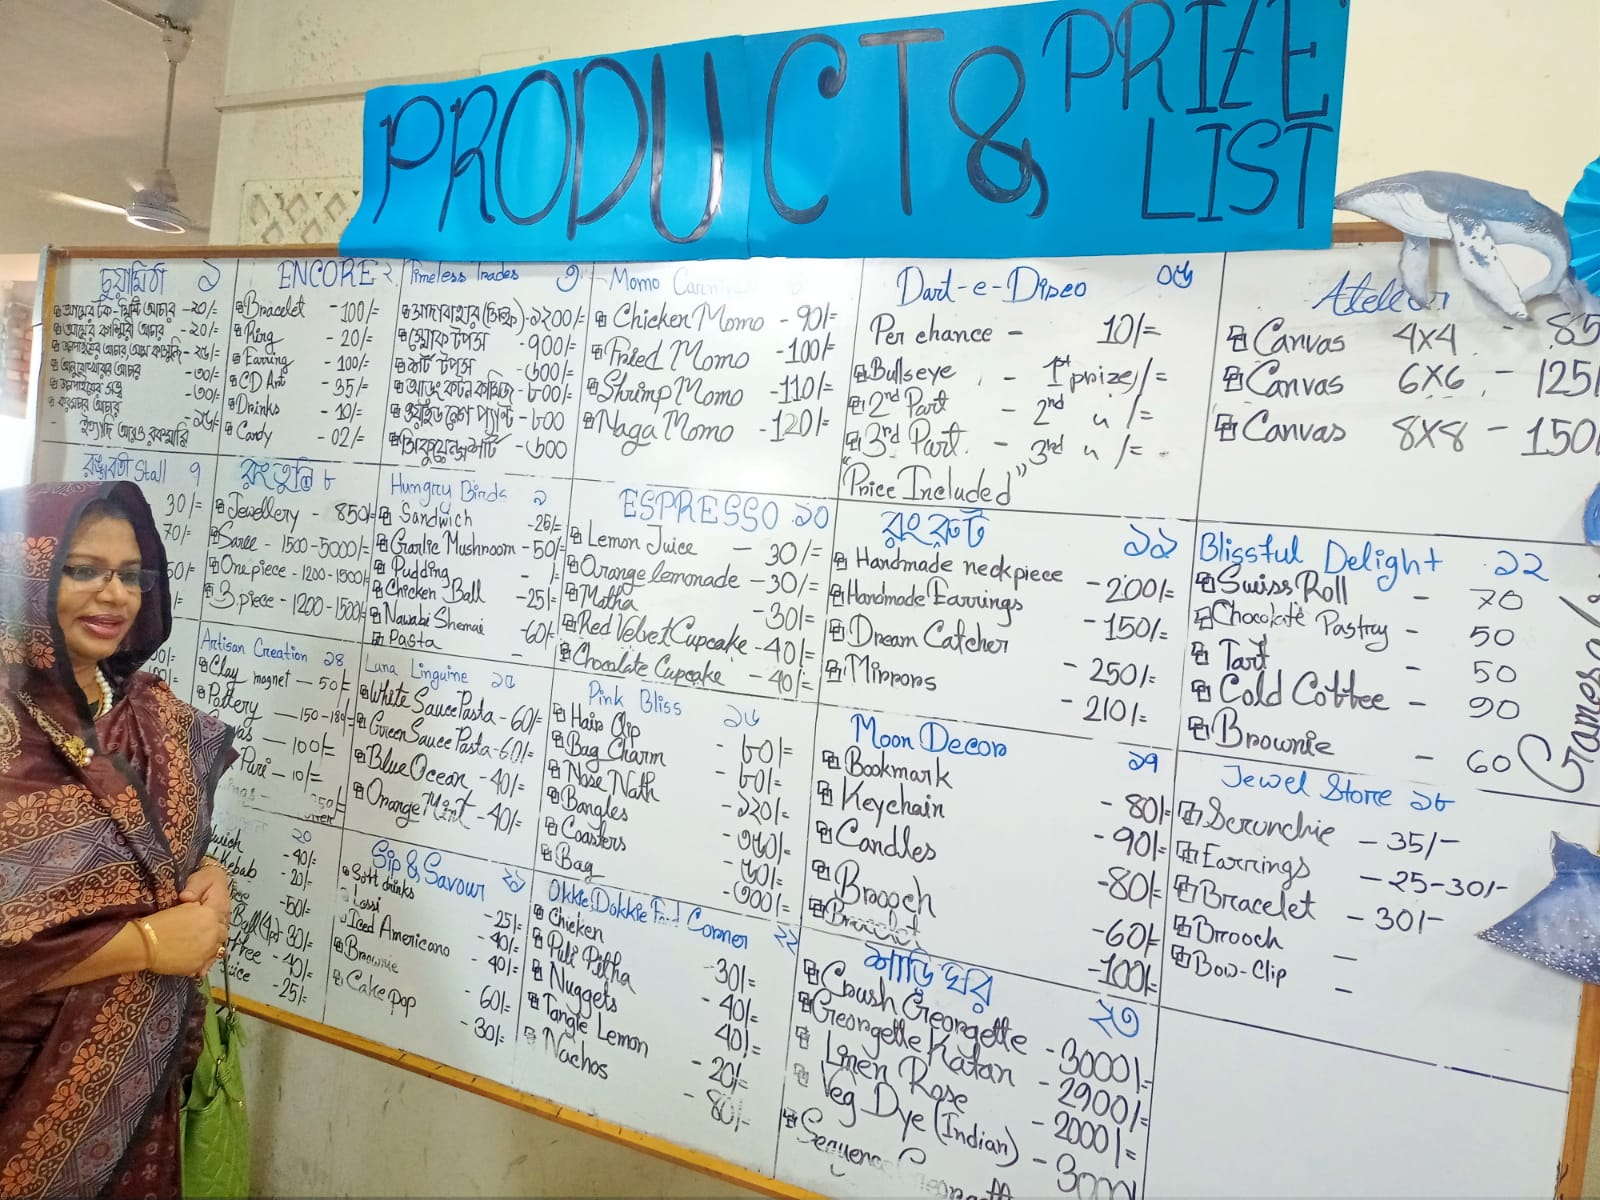 PRODUCT & PRIZE LIST
চুয়ামিঠা ১
-২০/-
-২০/-
ENCORE ২
Bracelet -100/=
Ring - 20/=
Earring -100/=
CD Art - 35/=
Drinks - 10/=
Candy - 02/=
Timeless Trades ৩
-১২০০/=
-৭০০/=
শর্ট টপস -৬০০/=
-৮০০/=
-৮০০
-৬০০
Momo
Chicken Momo - 90/=
Fried Momo -100/=
Shrimp Momo -110/=
Naga Momo -120/=
Dart-e-Disco ০৫
Per chance - 10/=
Bullseye - 1st prize/=
2nd Part - 2nd " /=
3rd Part. - 3rd " /=
"Price Included"
Atelier
Canvas 4x4 - 85
Canvas 6x6 - 125/
Canvas 8x8 - 150/
Stall ৭
30/=
70/=
50/=
রংতুলি ৮
Jewellery - 850/=
Saree - 1500-5000/=
One piece - 1200-1500/=
3.piece - 1200-1500/=
Hungry Birds ৯
Sandwich -25/=
Garlic Mushroom -50/=
Pudding - /=
Chicken Ball -25/=
Nawabi Shemai -60/=
Pasta -
ESPRESSO ১০
Lemon Juice - 30/=
Orange lemonade -30/=
Matha -30/=
Red Velvet Cupcake -40/=
Chocolate Cupcake - 40/=
রংরুট ১১
Handmade neckpiece -200/=
Handmade Earrings -150/=
Dream Catcher - 250/=
Mirrors - 210/=
Blissful Delight ১২
Swiss Roll - 70
Chocolate Pastry - 50
Tart - 50
Cold Coffee - 90
Brownie - 60
Games
Artisan Creation ১৪
Clay magnet - 50/=
Pottery -150-180/=
-100/=
Puri - 10/=
Luna Linguine ১৫
White Sauce Pasta - 60/=
Green Sauce Pasta - 60/=
Blue Ocean - 40/=
Orange Mint - 40/=
Pink Bliss ১৬
Hair Clip - ৮০/=
Bag Charm - ৮০/=
Nose Nath -১২০/=
Bangles
Coasters
Bag -৩০০/=
Moon Decor ১৭
Bookmark - 80/=
Keychain - 90/=
Candles -80/=
Brooch -60/=
Bracelet -100/=
Jewel Store ১৮
Scrunchie - 35/-
Earrings - 25-30/-
Bracelet - 30/-
Brooch -
Bow-Clip -
২০
-40/=
Kebab - 20/=
-50/=
Ball (4ps) -30/=
-40/=
-25/=
Sip & Savour ২১
Soft drinks -25/=
Lassi -40/=
Iced Americano -40/=
Brownie - 60/=
Cake pop - 30/=
Okkie Dokkie Food Corner ২২
Chicken -30/=
Puli Pitha - 40/=
Nuggets 40/=
Tangie Lemon - 20/=
Nachos - 80/-
শাড়ি ঘর ২৩
Crush Georgette - 3000/=
Georgette Katan - 2900/=
Linen Rose - 2000/=
Veg Dye (Indian) - 3000/
Sequence